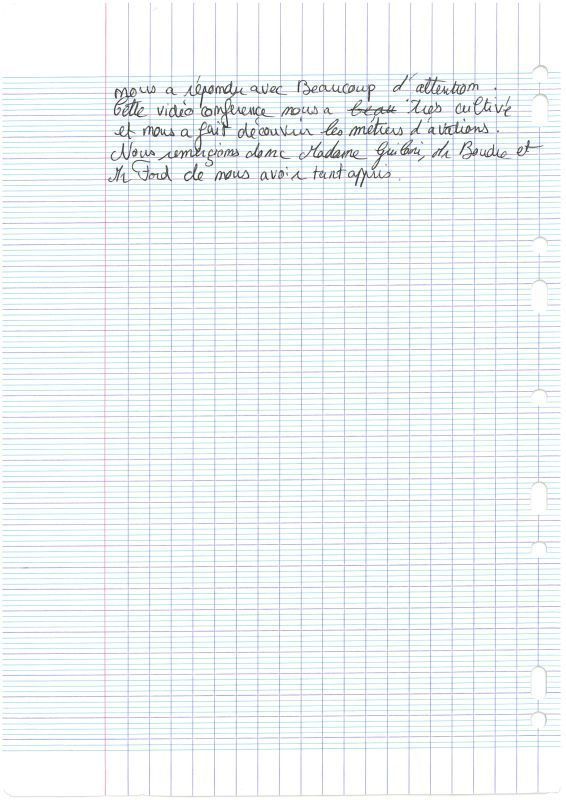 nous a répondu avec Beaucoup d'attention.
Cette vidéo conférence nous a beau très cultivé
et nous a fait découvrir les métiers d'aviations.
Nous remercions donc Madame Mr Boudie et
Mr Ford de nous avoir tant appris.